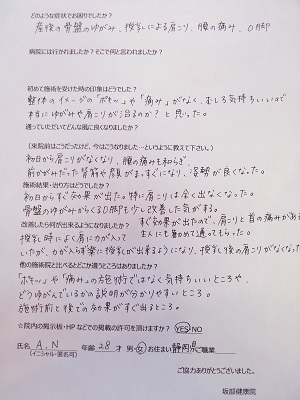 どのような症状でお困りでしたか?
産後の骨盤のゆがみ、授乳による肩こり、腰の痛み、O脚
病院には行かれましたか?そこで何と言われましたか?
初めて施術を受けた時の印象はどうでした?
整体のイメージの「ボキッ」や「痛み」がなく、むしろ気持ちいいので
本当にゆがみや肩こりが治るのか?と思った。
通っていただいてどんな風に良くなりましたか?
(来院前はこうだったけど、今はこうなりました…というように教えて下さい。)
初日から肩こりがなくなり、腰の痛みも和らぎ、
前かがみだった背筋や肩がまっすぐになり、姿勢が良くなった。
施術結果・治り方はどうでしたか?
初日からすぐ効果が出た。特に肩こりは全く出なくなった。
骨盤のゆがみからくるO脚も少し改善した気がする。
すぐ効果が出たので、肩こりと首の痛みがある
主人にも勧めて通ってもらった。
改善したら何が出来るようになりましたか?
授乳時によく肩に力が入って
いたが、力が入らず楽に授乳が出来るようになり、授乳後の肩こりがなくなった
他の施術院と比べるとどこか違うところはありましたか?
「ボキッ」や「痛み」の施術ではなく気持ちいいところや、
どうゆがんでいるかの説明が分かりやすいところ。
施術前と後での効果がすぐ出るところ。
☆院内の掲示板・HPなどでの掲載の許可を頂けますか? YES/NO
氏名 A.N 年齢 28才 男・女 お住まい 静岡県 ご職業
(イニシャル・匿名可)
ご協力ありがとうございました。
坂部健康院